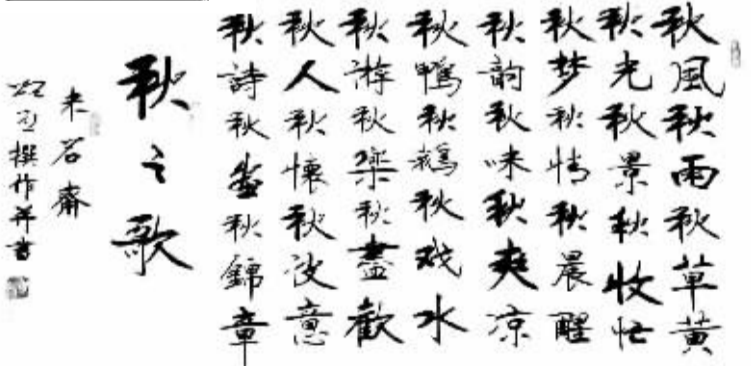 秋風秋雨秋草黄
秋光秋景秋收忙
秋梦秋情秋晨醒
秋韵秋味秋爽凉
秋鴨秋鵝秋戏水
秋游秋樂秋盡歡
秋人秋懷秋波意
秋詩秋画秋錦章
秋之歌
米石齋
撰作并書